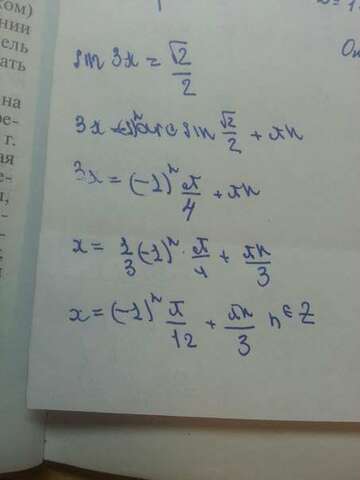 ком)
нии
ель
ать
на
ре-
г.
ая
sin 3x = √2/2
3x = (-1)ⁿ arcsin √2/2 + πn
3x = (-1)ⁿ π/4 + πn
x = 1/3 (-1)ⁿ · π/4 + πn/3
x = (-1)ⁿ π/12 + πn/3 n ∈ Z